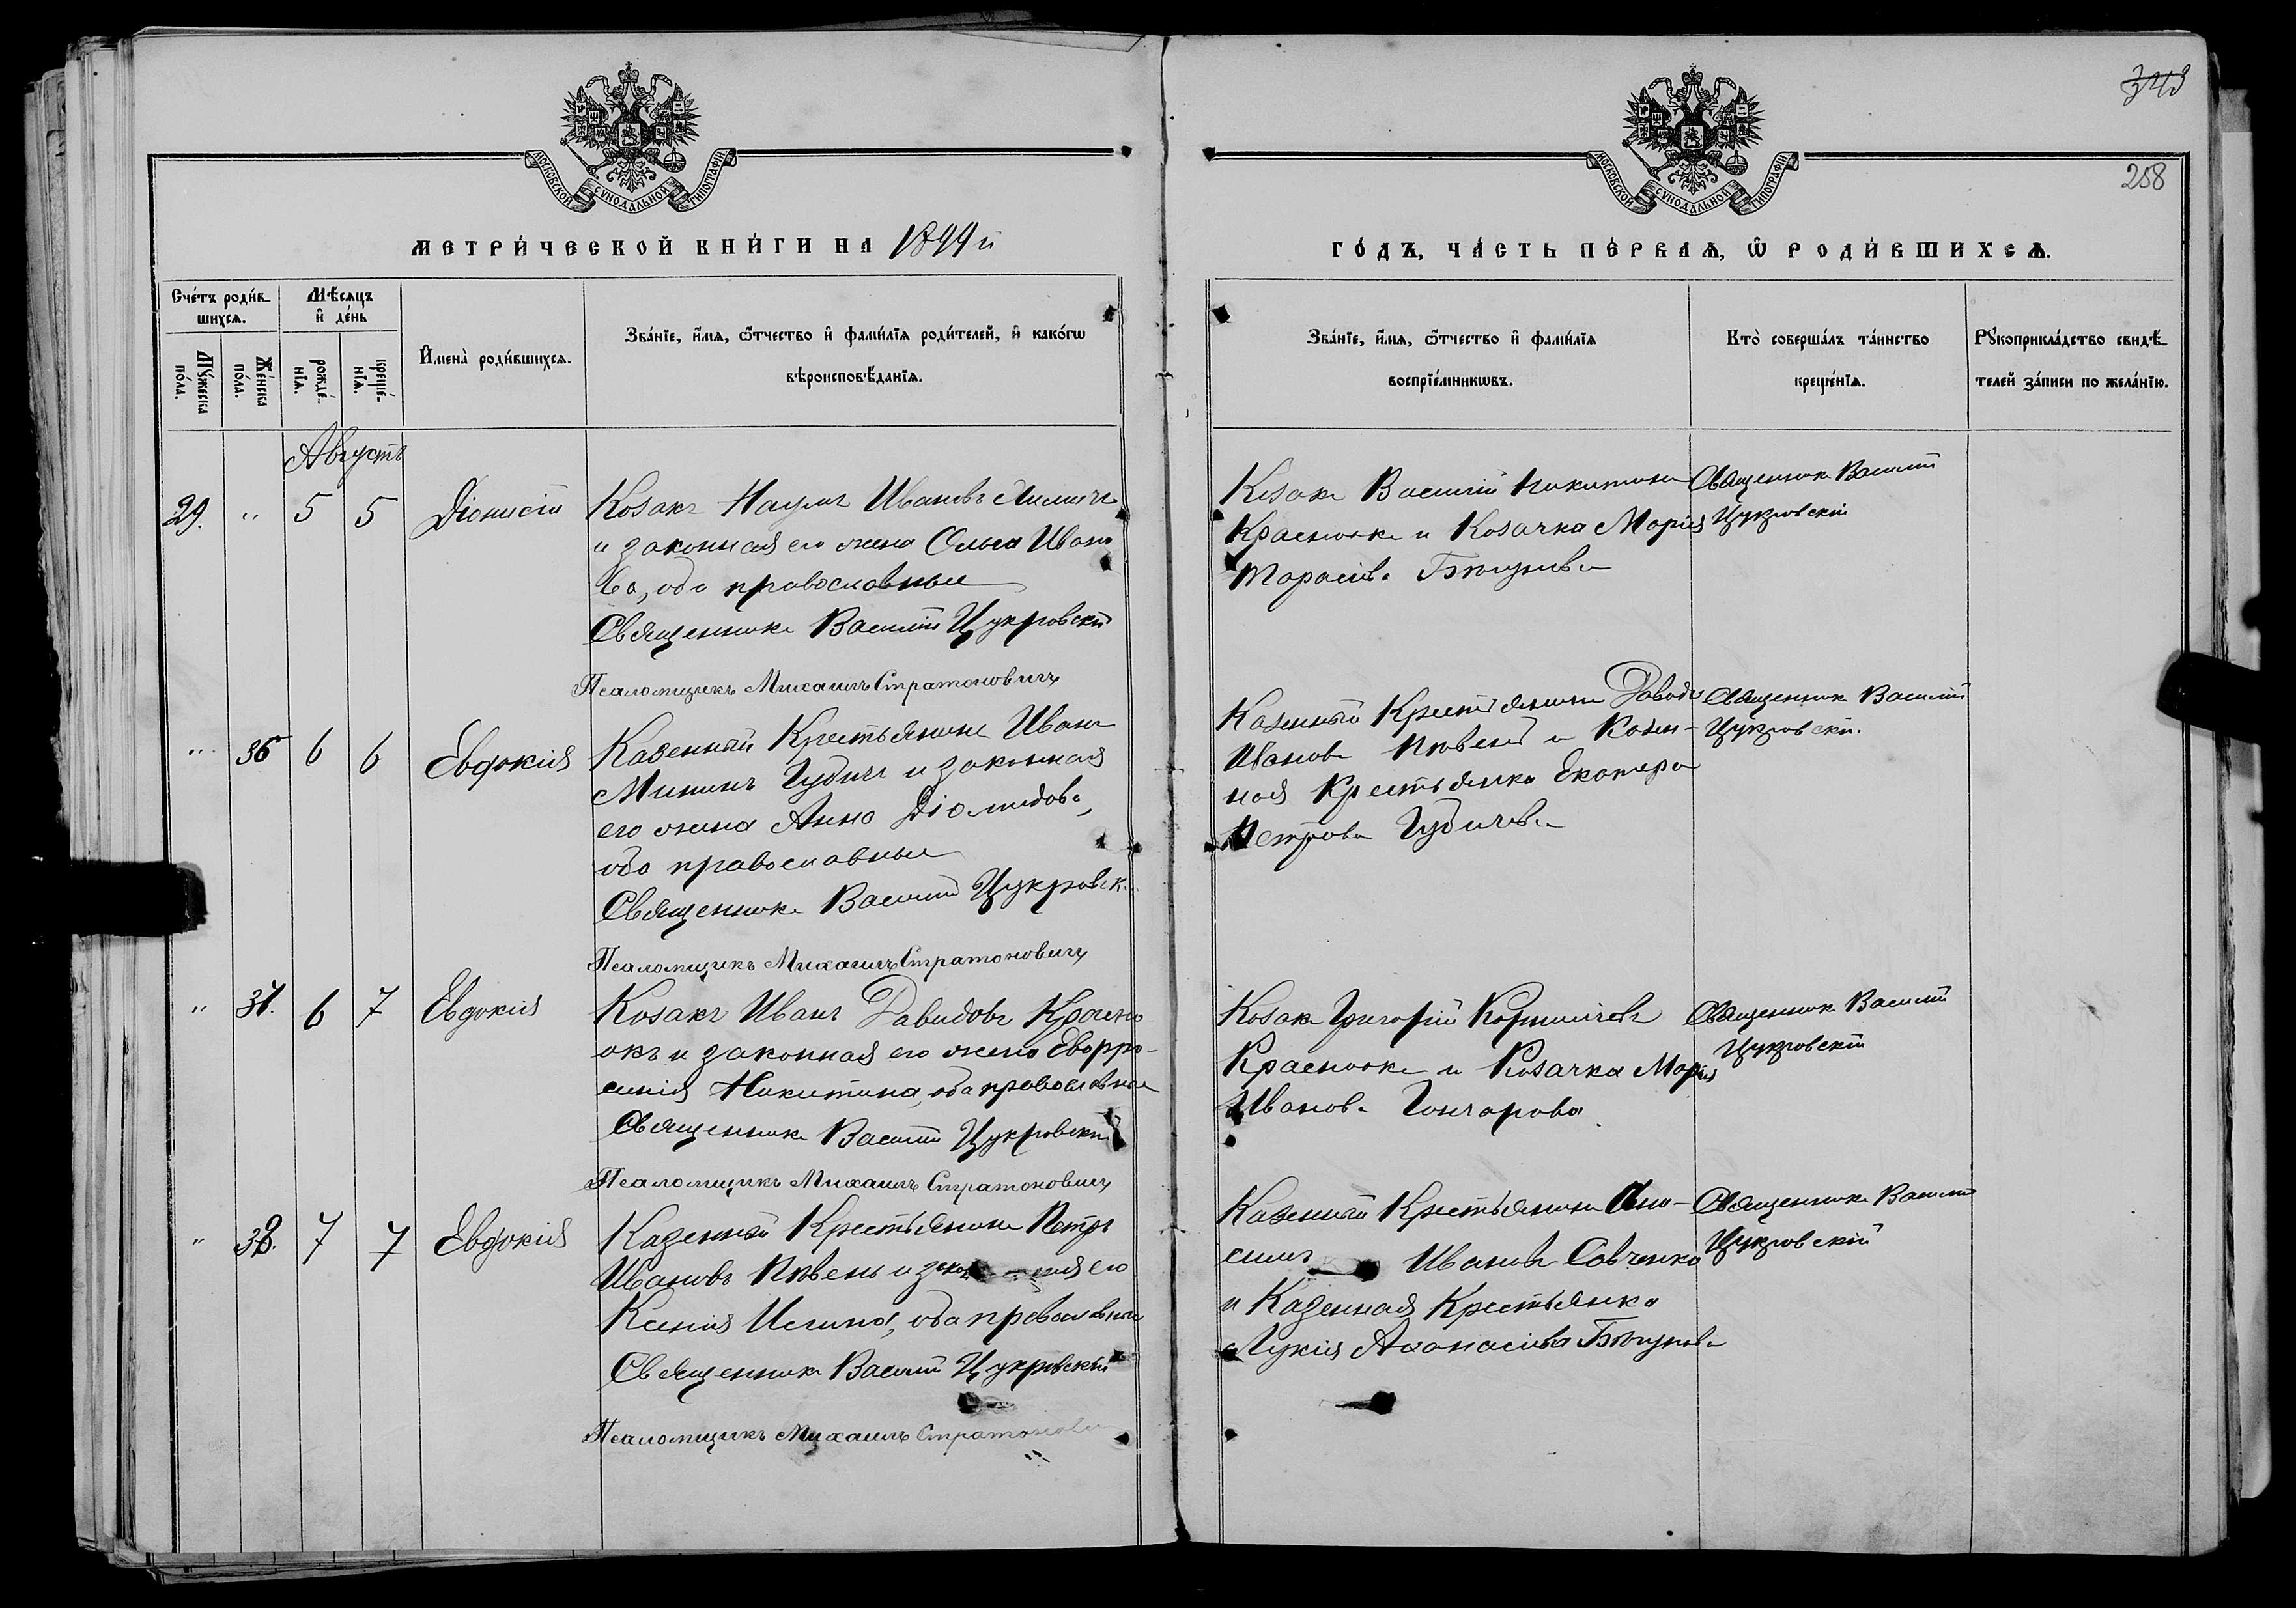 343
258
МОСКОВСКОЙ СѴНОДАЛЬНОЙ ТИПОГРАФІИ
МОСКОВСКОЙ СѴНОДАЛЬНОЙ ТИПОГРАФІИ
МЕТРИ́ЧЕСКОЙ КНИ́ГИ НА 1899 й
ГО́ДЪ, ЧА́СТЬ ПЕ́РВАѦ, Ѡ҆ РОДИ́ВШИХСѦ.
Сче́тъ роди́в-
шихсѧ.
Мѣ́сѧцъ
и҆ де́нь
Мꙋ́жеска
по́ла.
Же́нска
по́ла.
рожде́-
нїѧ.
креще́-
нїѧ.
И҆мена̀ роди́вшихсѧ.
Зва́нїе, и҆́мѧ, ѻ҆́тчество и҆ фами́лїѧ роди́телей, и҆ како́гѡ
вѣроисповѣ́данїѧ.
Зва́нїе, и҆́мѧ, ѻ҆́тчество и҆ фами́лїѧ
воспрїе́мникѡвъ.
Кто̀ соверша́лъ та́инство
креще́нїѧ.
Рꙋкоприкла́дство свидѣ́-
телей за́писи по жела́нїю.
Августъ
29. " 5 5 Діонисій
Козакъ Наумъ Ивановъ
и законная его жена Ольга Ивано
ва, оба православные
Священникъ Василій Цукровскій
Псаломщикъ Михаилъ Стратоновичъ
Козакъ Василій Никитинъ
Краснокъ и Козачка Марія
Тарасіева
Священникъ Василій
Цукровскій
" 36 6 6 Евдокія
Казенный Крестьянинъ Иванъ
Мининъ Чудичъ и законная
его жена Анна Діомидова,
оба православные
Священникъ Василій Цукровск.
Псаломщикъ Михаилъ Стратоновичъ
Казенный Крестьянинъ Давидъ
Ивановъ Пѣвень и Казен-
ная Крестьянка Екатерина
Петрова Чудичева
Священникъ Василій
Цукровскій.
" 37. 6 7 Евдокія
Козакъ Иванъ Давидовъ Красно
окъ и законная его жена Евфро-
синія Никитина, оба православные
Священникъ Василій Цукровскій
Псаломщикъ Михаилъ Стратоновичъ
Козакъ Григорій Корниліевъ
Краснокъ и Козачка Марія
Иванова Гончарова
Священникъ Василій
Цукровскій
" 38. 7 7 Евдокія
Казенный Крестьянинъ Петръ
Ивановъ Пѣвень и законная его
Ксенія Исаина, оба православные
Священникъ Василій Цукровскій
Псаломщикъ Михаилъ Стратонови
Казенный Крестьянинъ Они-
симъ Ивановъ Савченко
и Казенная Крестьянка
Лукія Афанасіева
Священникъ Василій
Цукровскій